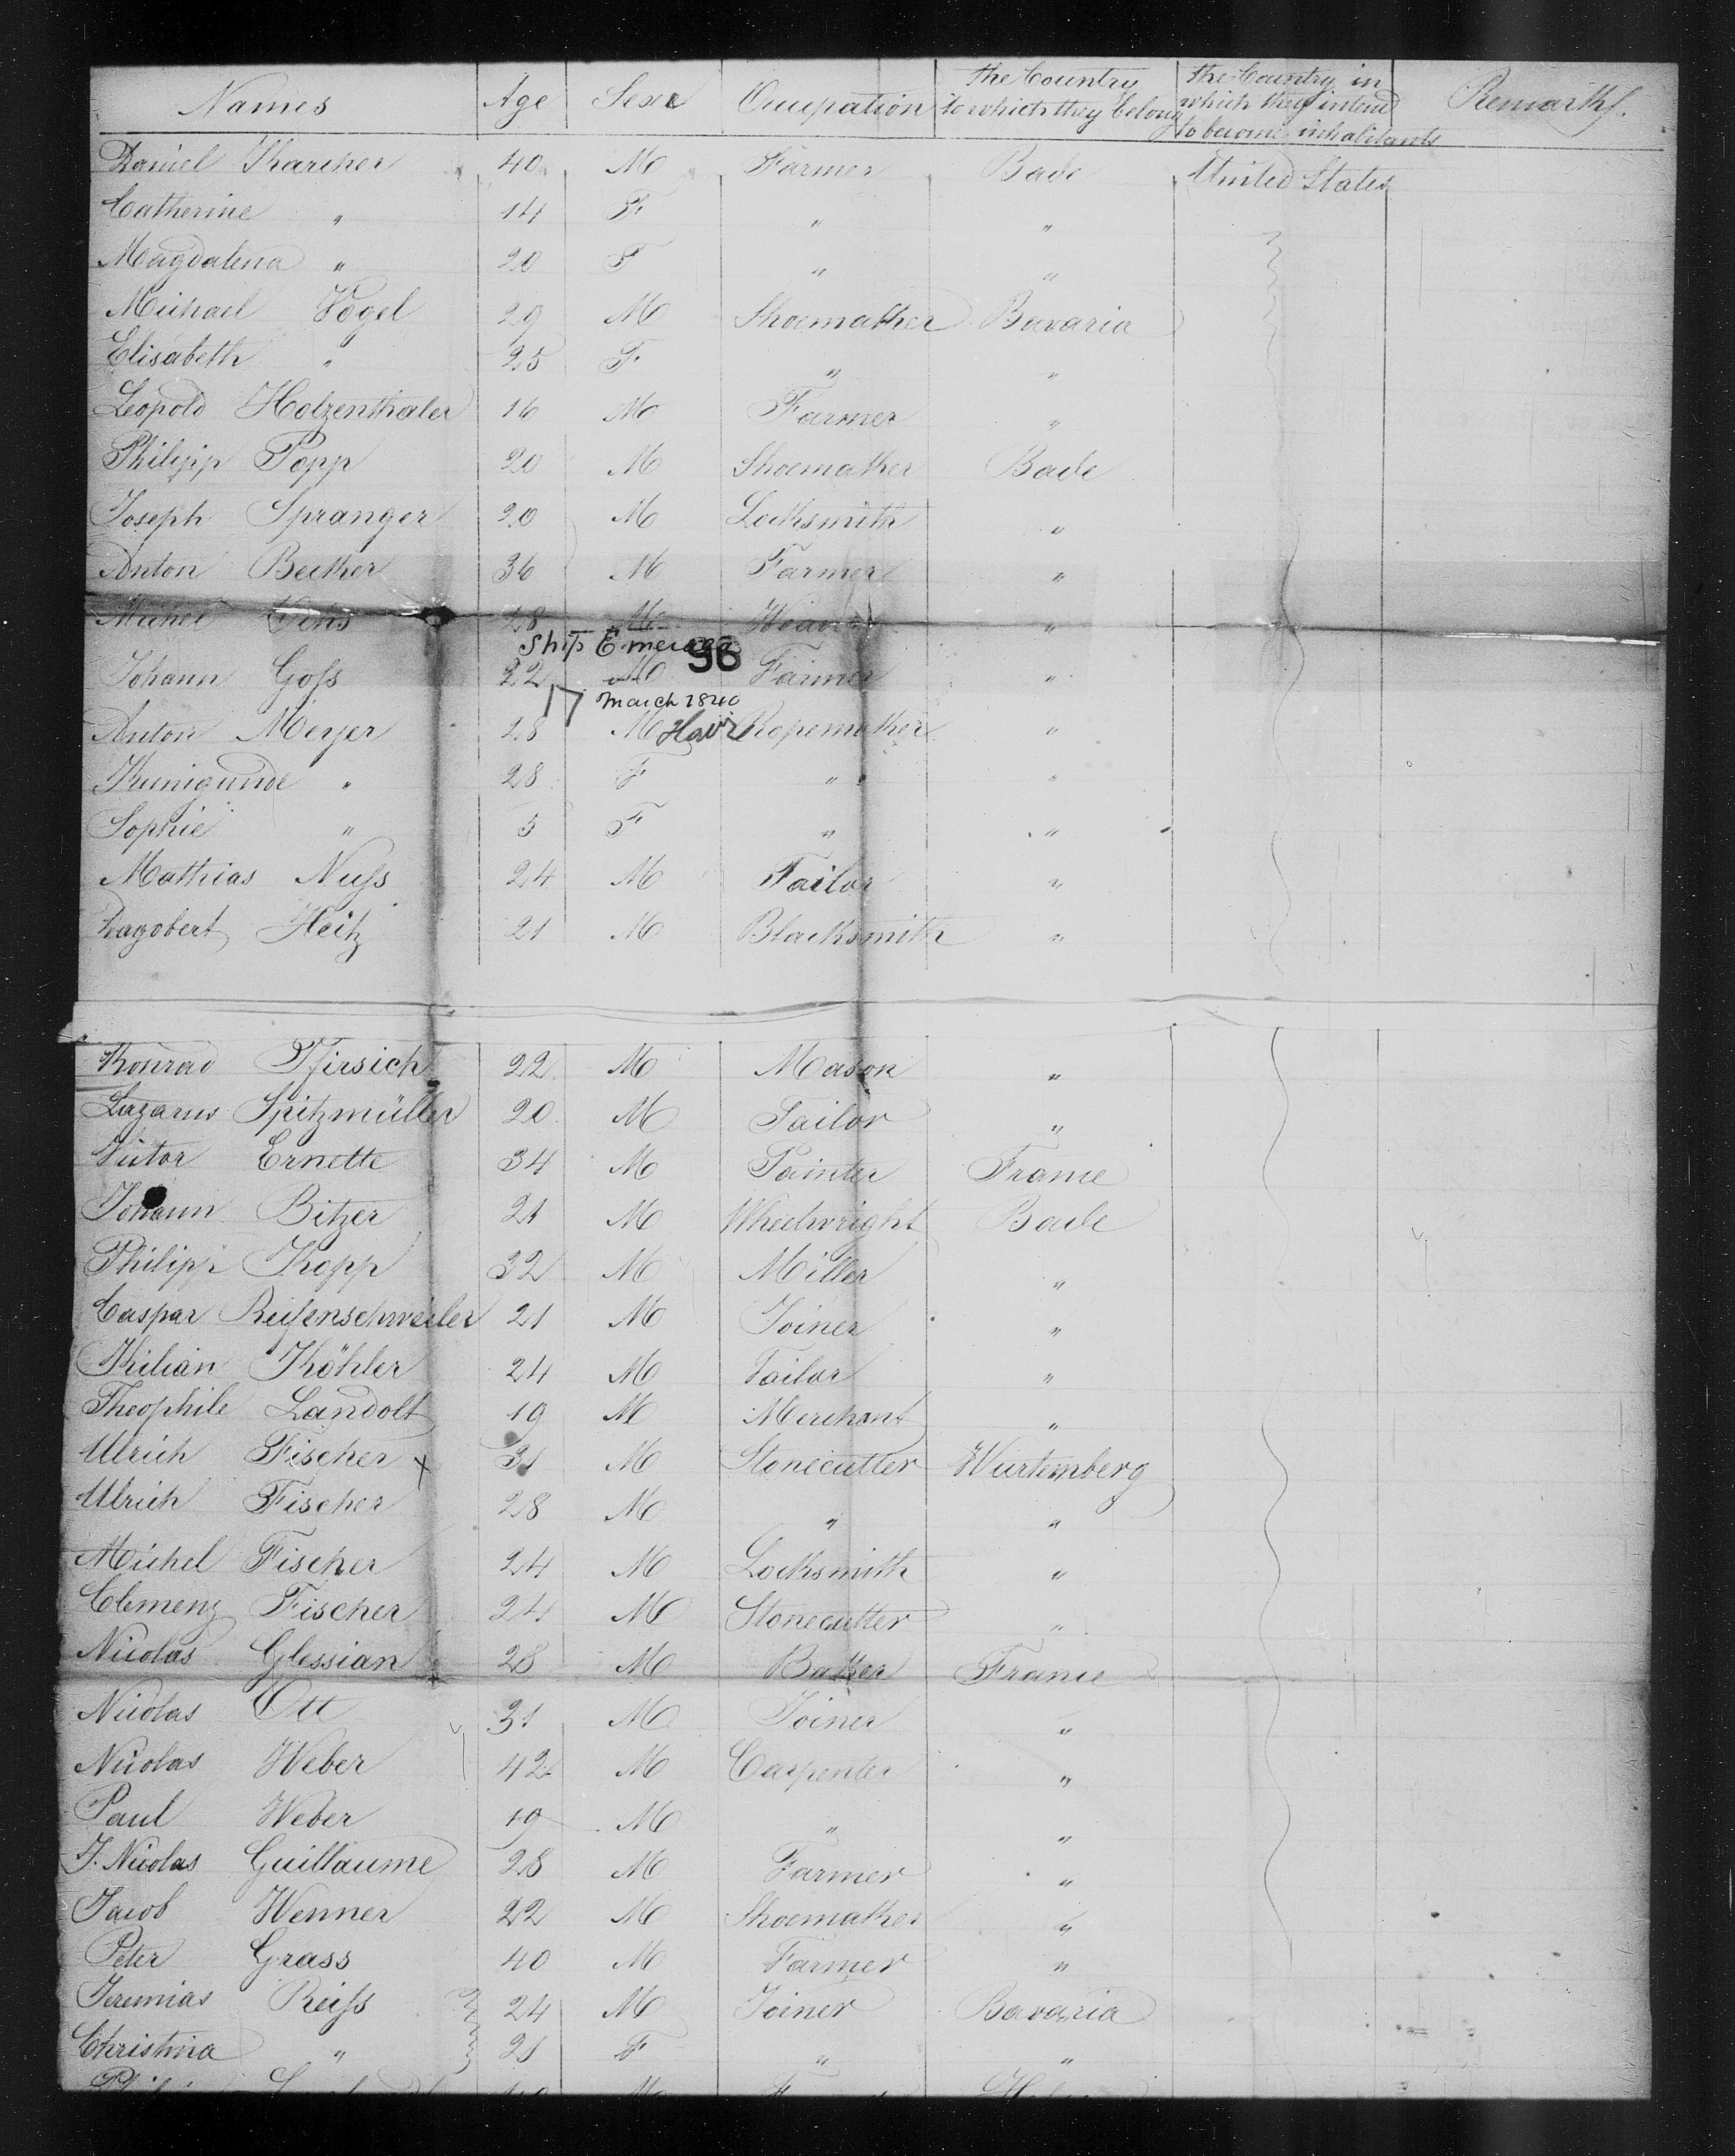 Names Age Sexe Occupation the Country to which they belong the Country in which they intend to become inhabitants Remarks.
Daniel Karcher 40 M Farmer Bade United States
Catherine " 14 F " "
Magdalena " 20 F " "
Michael Vogel 29 M Shoemaker Bavaria
Elisabeth " 25 F " "
Leopold Holzenthaler 16 M Farmer "
Philipp Popp 20 M Shoemaker Bade
Joseph Spranger 20 M Locksmith "
Anton Becker 36 M Farmer "
Michel 28 M "
Ship Emerald 96
Johann Goss 22 M Farmer "
17 March 1840
Anton Meyer 28 M Havre Ropemaker "
Kunigunde " 28 F " "
Sophie " 5 F " "
Mathias Nuss 24 M Tailor "
Dagobert Heitz 21 M Blacksmith "
Konrad Pfirsich 22 M Mason "
Lazarus Spitzmüller 20 M Tailor "
Victor Ernette 34 M Painter France
Johann Bitzer 21 M Wheelwright Bade
Philipp Kopp 32 M Miller "
Caspar Reifenschweiler 21 M Joiner "
Kilian Köhler 24 M Tailor "
Theophile Landolt 19 M Merchant "
Ulrich Fischer x 31 M Stonecutter Wurtemberg
Ulrich Fischer 28 M " "
Michel Fischer 24 M Locksmith "
Clemenz Fischer 24 M Stonecutter "
Nicolas Glessian 28 M Baker France
Nicolas Ott 31 M Joiner "
Nicolas Weber 42 M Carpenter "
Paul Weber 19 M " "
J. Nicolas Guillaume 28 M Farmer "
Jacob Wenner 22 M Shoemaker "
Peter Grass 40 M Farmer "
Jeremias Reiss 24 M Joiner Bavaria
Christina " 21 F " "